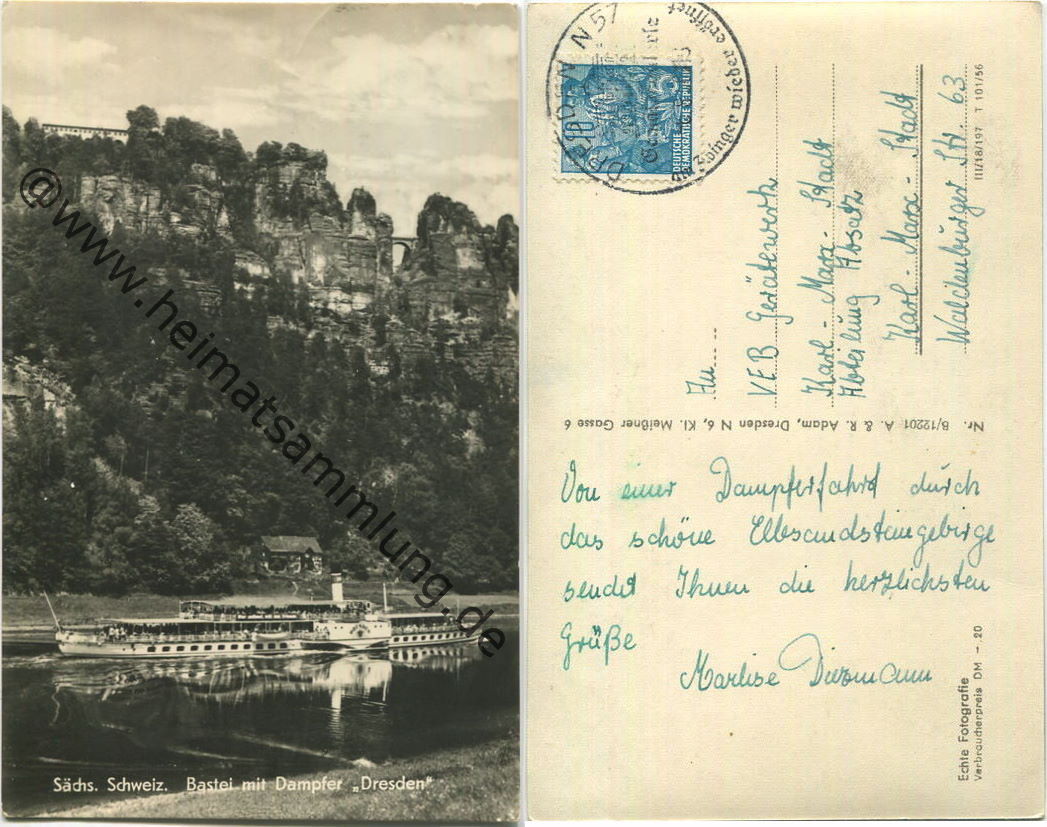 @www.heimatsammlung.de
Sächs. Schweiz. Bastei mit Dampfer „Dresden"
DEUTSCHE
DEMOKRATISCHE REPUBLIK
10
DRESDEN N
57
Zwinger wieder eröffnet
An
VEB Gerätewerk
Karl-Marx-Stadt
Abteilung Absatz
Karl-Marx-Stadt
Waldenburger Str. 63
III/18/197 T 101/56
Nr. B/12201 A. & R. Adam, Dresden N 6, Kl. Meißner Gasse 6
Von einer Dampferfahrt durch
das schöne Elbsandsteingebirge
sendet Ihnen die herzlichsten
Grüße
Marlise
Echte Fotografie
Verbraucherpreis DM -.20